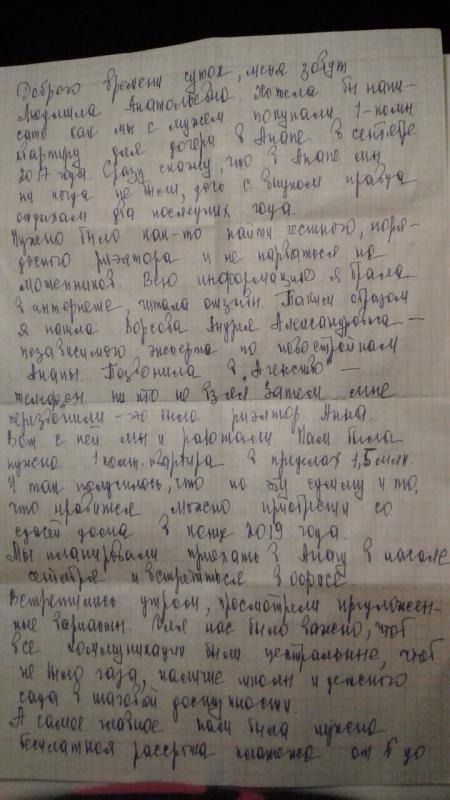 Доброго времени суток, меня зовут
Людмила Анатольевна. Хотела бы напи-
сать как мы с мужем покупали 1-комн
квартиру для дочери в Анапе в сентябре
2017 года. Сразу скажу, что в Анапе мы
ни когда не были, дочь с внуком правда
отдыхали два последних года.
Нужно было как-то найти честного, поря-
дочного риэлтора и не нарваться на
мошенников. Всю информацию я брала
в интернете, читала отзывы. Таким образом
я нашла Борсова Андрея Александровича -
независимого эксперта по новостройкам
Анапы. Позвонила в "Агенство" -
телефон ни кто не взял Затем мне
перезвонили - это была риэлтор Анна.
Вот с ней мы и работали Нам была
нужна 1 комн. квартира в пределах 1,5 млн.
И так получилось, что на эту сумму и то,
что нравится можно приобрести со
сдачей дома в конце 2019 года.
Мы планировали приехать в Анапу в начале
сентября и встретиться в офисе.
Встретились утром, просмотрели предложен-
ные варианты. Для нас было важно, чтоб
все коммуникации были центральные, чтоб
не было газа, наличие школы и детского
сада в шаговой доступности
А самое главное нам была нужна
бесплатная рассрочка платежа от до